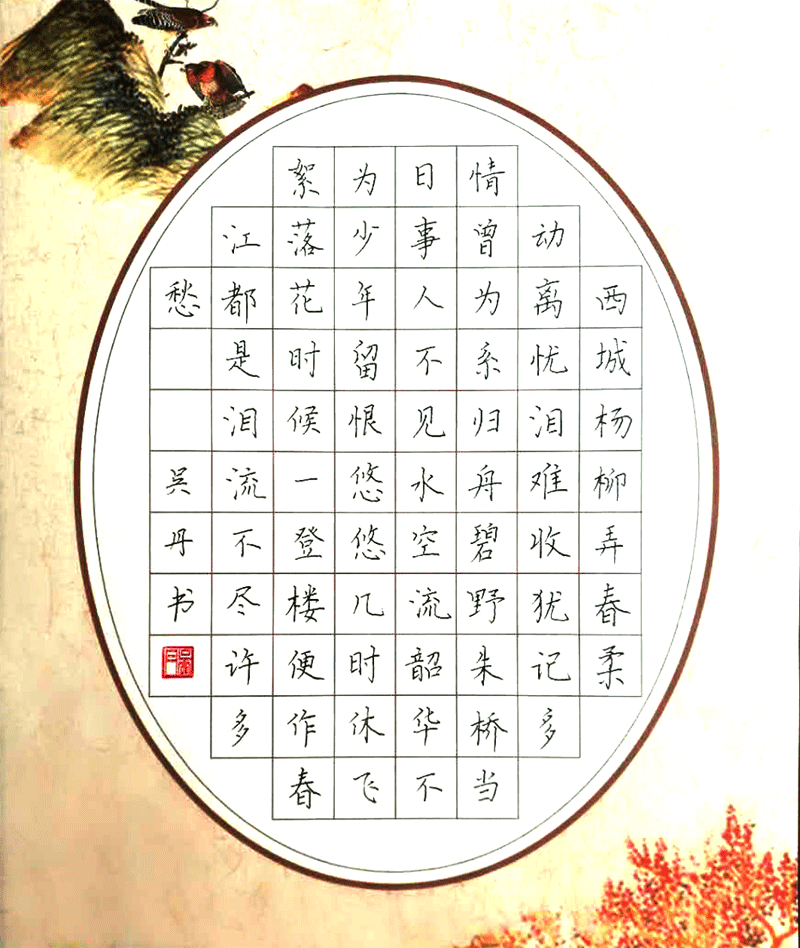 西城杨柳弄春柔
动离忧泪难收犹记多
情曾为系归舟碧野朱桥当
日事人不见水空流韶华不
为少年留恨悠悠几时休飞
絮落花时候一登楼便作春
江都是泪流不尽许多
愁 吳丹书